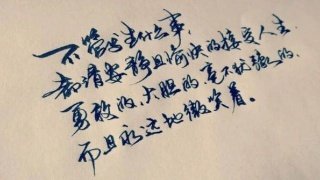 不管发生什么事，
都请安静且愉快的接受人生，
勇敢的、大胆的，毫不犹豫的，
而且永远地微笑着。